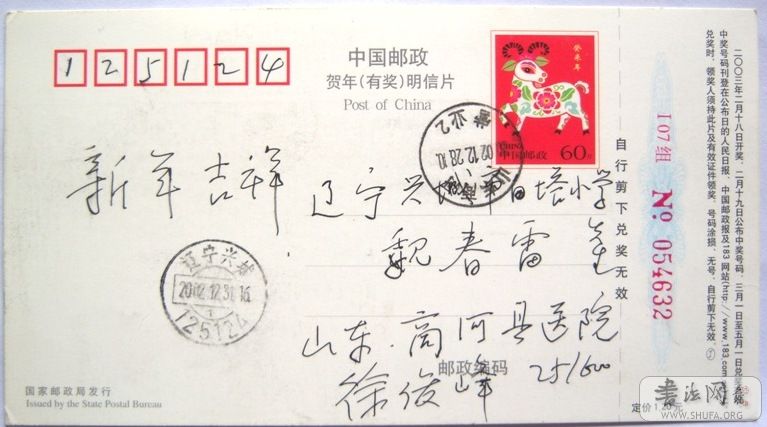 125124
中国邮政
贺年(有奖)明信片
Post of China
癸未年
CHINA
中国邮政 60分
02.12.28.10
新年吉祥
辽宁兴城市日培小学
魏春雷
山东.商河县医院
徐俊峰
邮政编码 251600
辽宁兴城
2002.12.31.16
125124
国家邮政局发行
Issued by the State Postal Bureau
自行剪下兑奖无效
I 07组
No 054632
二〇〇三年二月十八日开奖,二月十九日公布中奖号码,三月一日至五月一日兑奖
中奖号码刊登在公布日的人民日报、中国邮政报及183网站(http://www.183.com
兑奖时,领奖人须持此片及有效证件领奖,号码涂损、无号、自行剪下无效。
定价1.20元
书法网
WWW.SHUFA.ORG